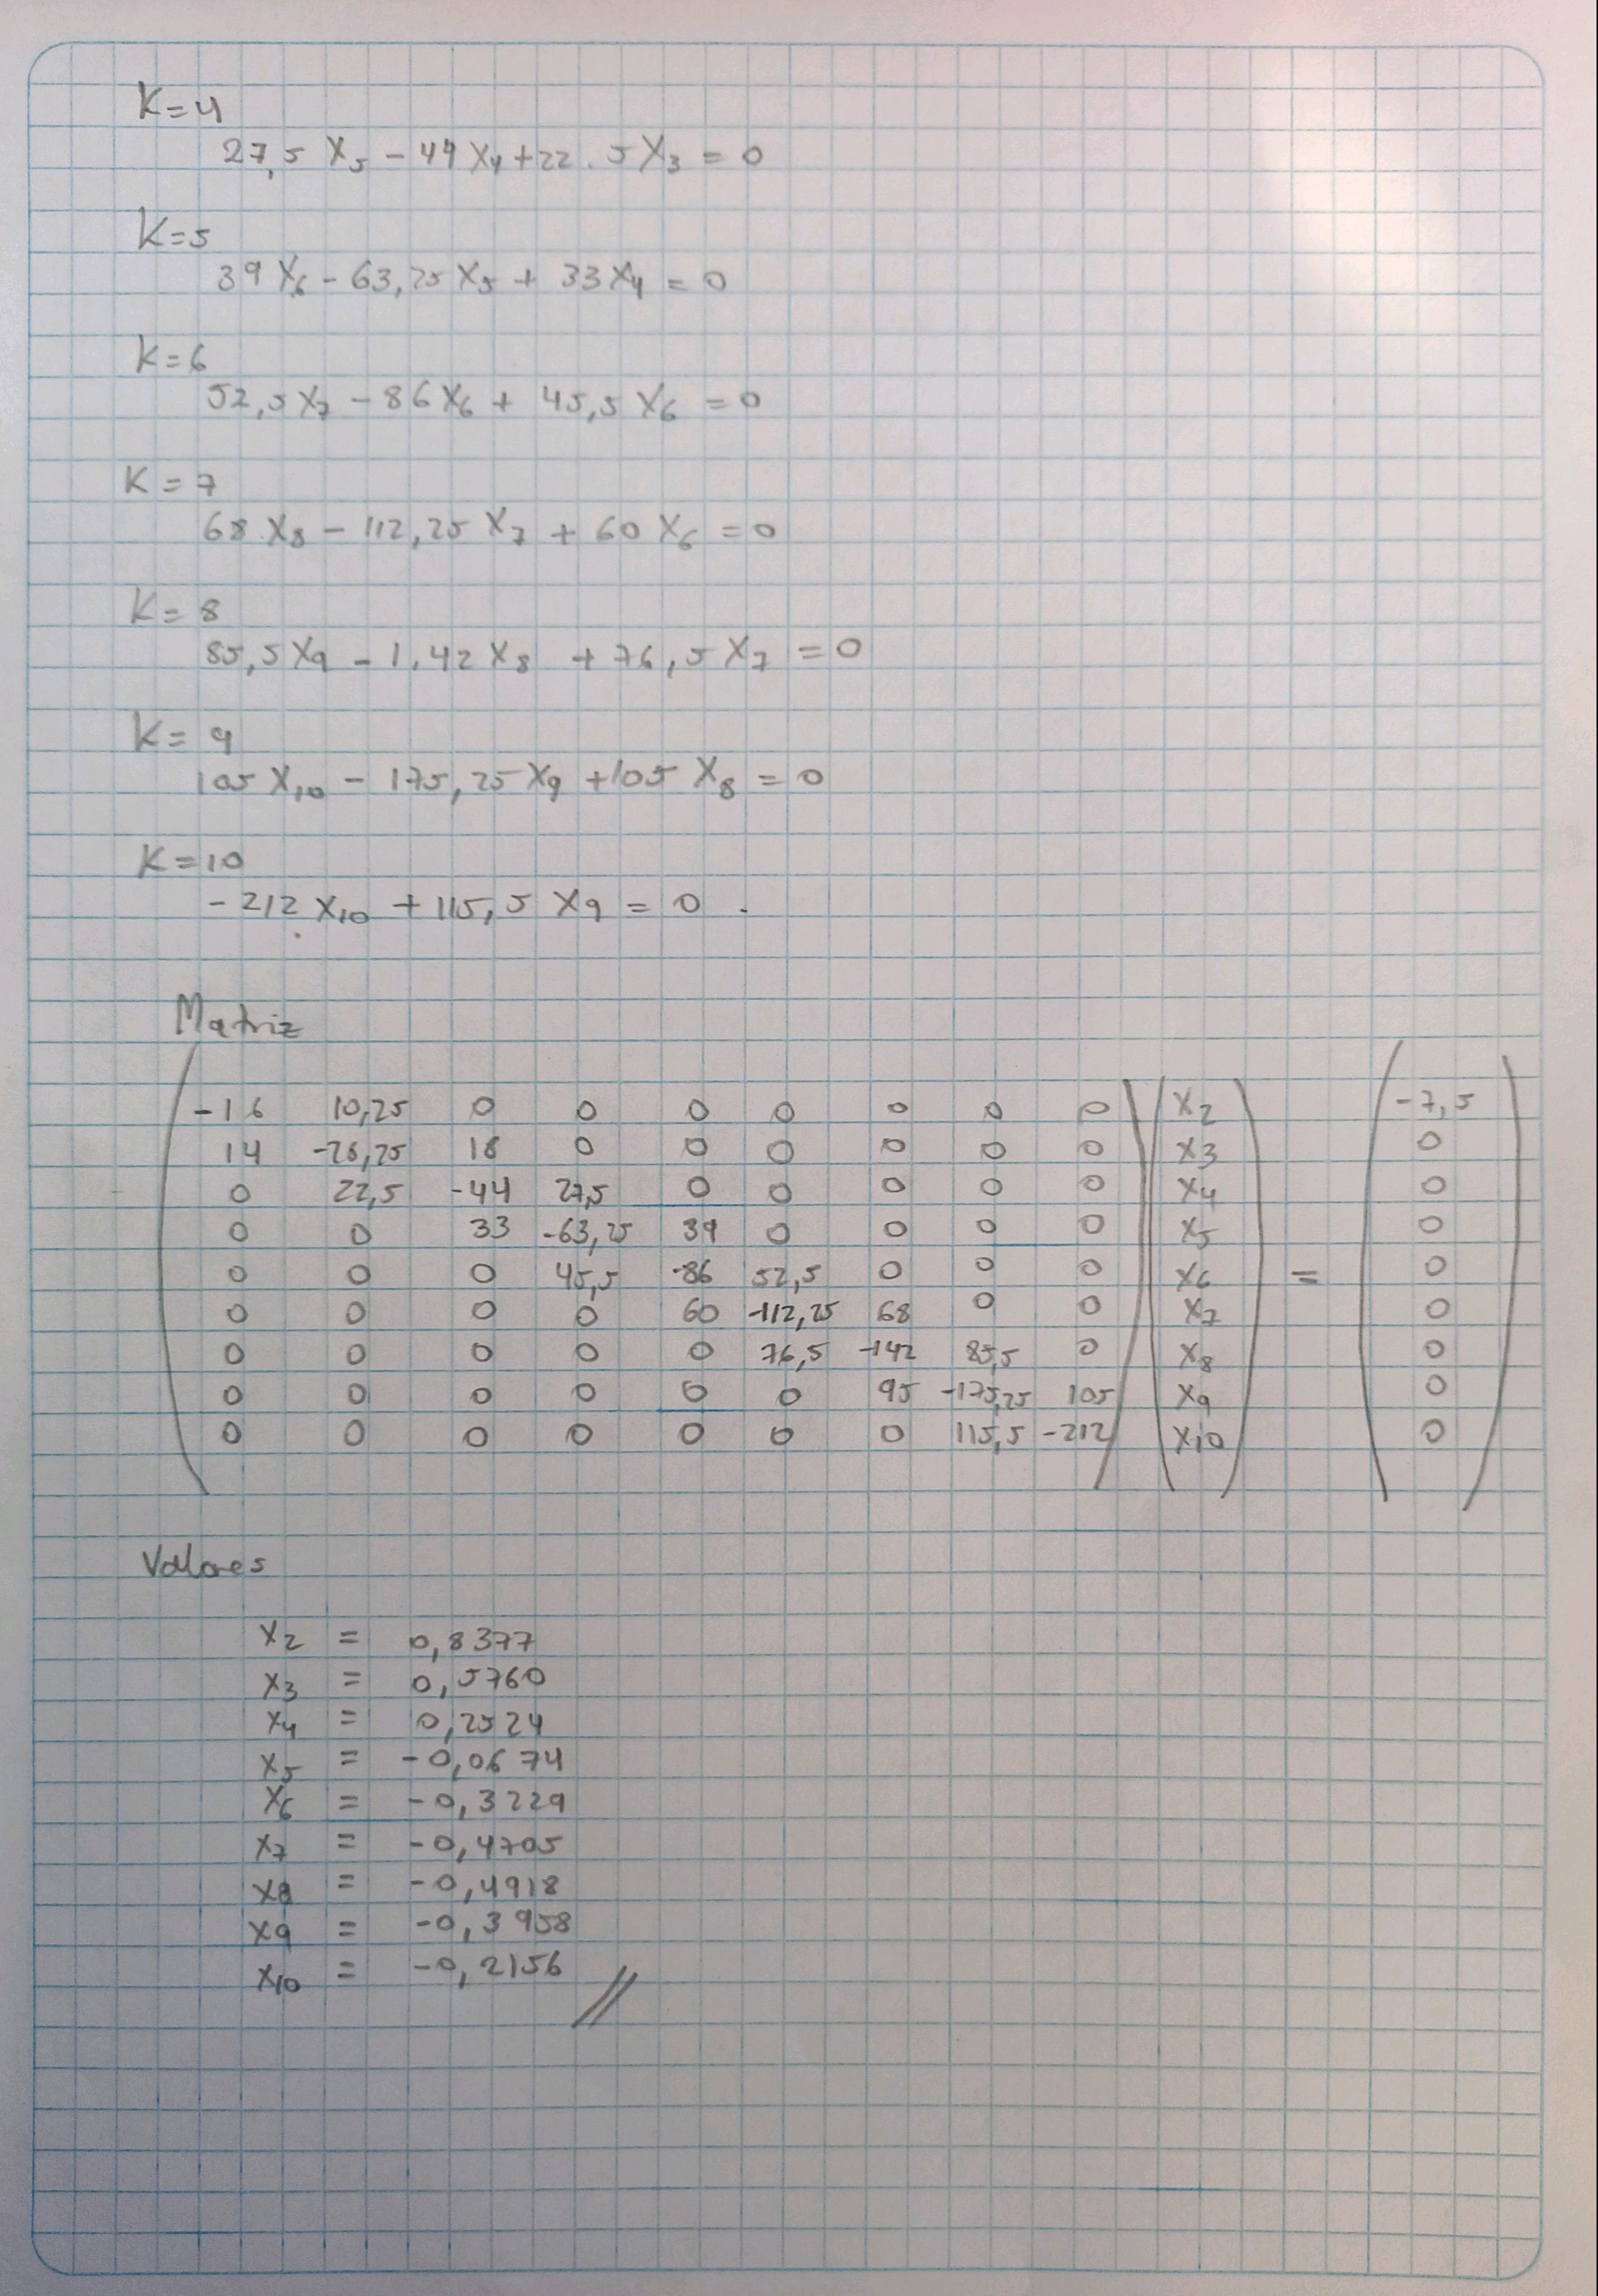 K=4
27,5 X5 - 44 X4 + 22.5 X3 = 0
K=5
39 X6 - 63,25 X5 + 33 X4 = 0
K=6
52,5 X7 - 86 X6 + 45,5 X6 = 0
K=7
68 X8 - 112,25 X7 + 60 X6 = 0
K=8
85,5 X9 - 1.42 X8 + 76,5 X7 = 0
K=9
105 X10 - 175,25 X9 + 105 X8 = 0
K=10
-212 X10 + 115,5 X9 = 0.
Matriz
-16 10,25 0 0 0 0 0 0 0 X2 -7,5
14 -28,25 18 0 0 0 0 0 0 X3 0
0 22,5 -44 27,5 0 0 0 0 0 X4 0
0 0 33 -63,25 39 0 0 0 0 X5 0
0 0 0 45,5 -86 52,5 0 0 0 X6 = 0
0 0 0 0 60 -112,25 68 0 0 X7 0
0 0 0 0 0 76,5 -142 85,5 0 X8 0
0 0 0 0 0 0 95 -175,25 105 X9 0
0 0 0 0 0 0 0 115,5 -212 X10 0
Valores
X2 = 0,8377
X3 = 0,5760
X4 = 0,2524
X5 = -0,0674
X6 = -0,3229
X7 = -0,4705
X8 = -0,4918
X9 = -0,3958
X10 = -0,2156 //